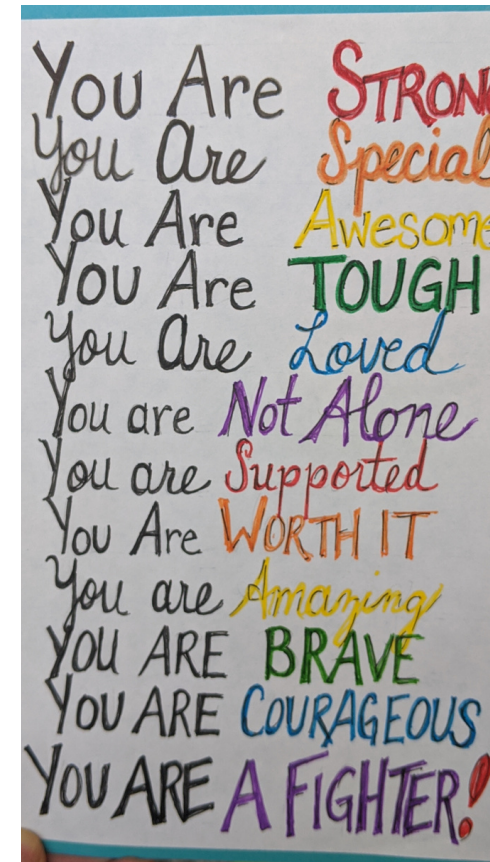 You Are STRON
You Are Special
You Are Awesome
You Are TOUGH
You Are Loved
You are Not Alone
You are Supported
You Are WORTH IT
You are Amazing
YOU ARE BRAVE
YOU ARE COURAGEOUS
YOU ARE A FIGHTER!